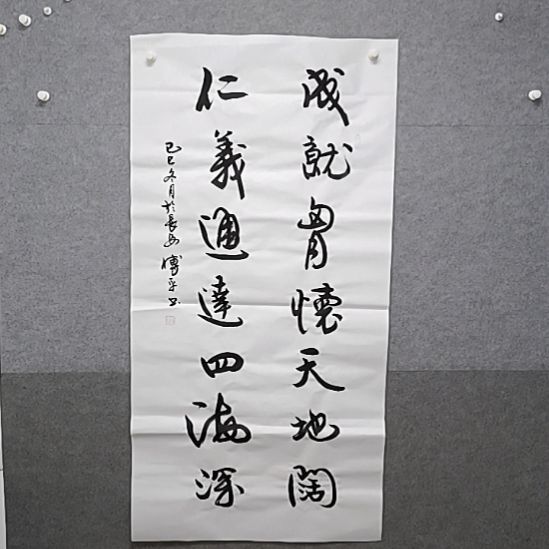 成就胷懷天地闊
仁義通達四海深
己巳冬月於長安 傅平书